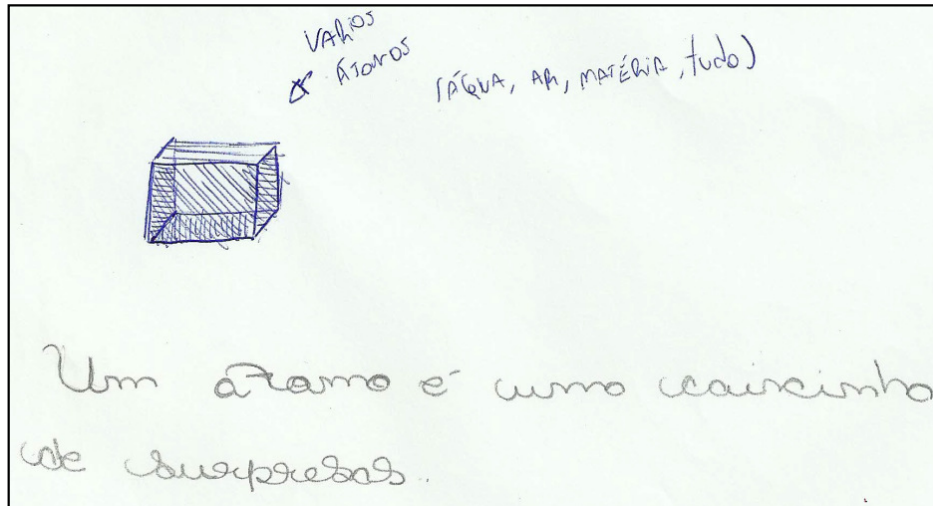 VARIOS
ÁTOMOS
(ÁGUA, AR, MATÉRIA, tudo)
Um átomo é uma caixinha
de surpresas.